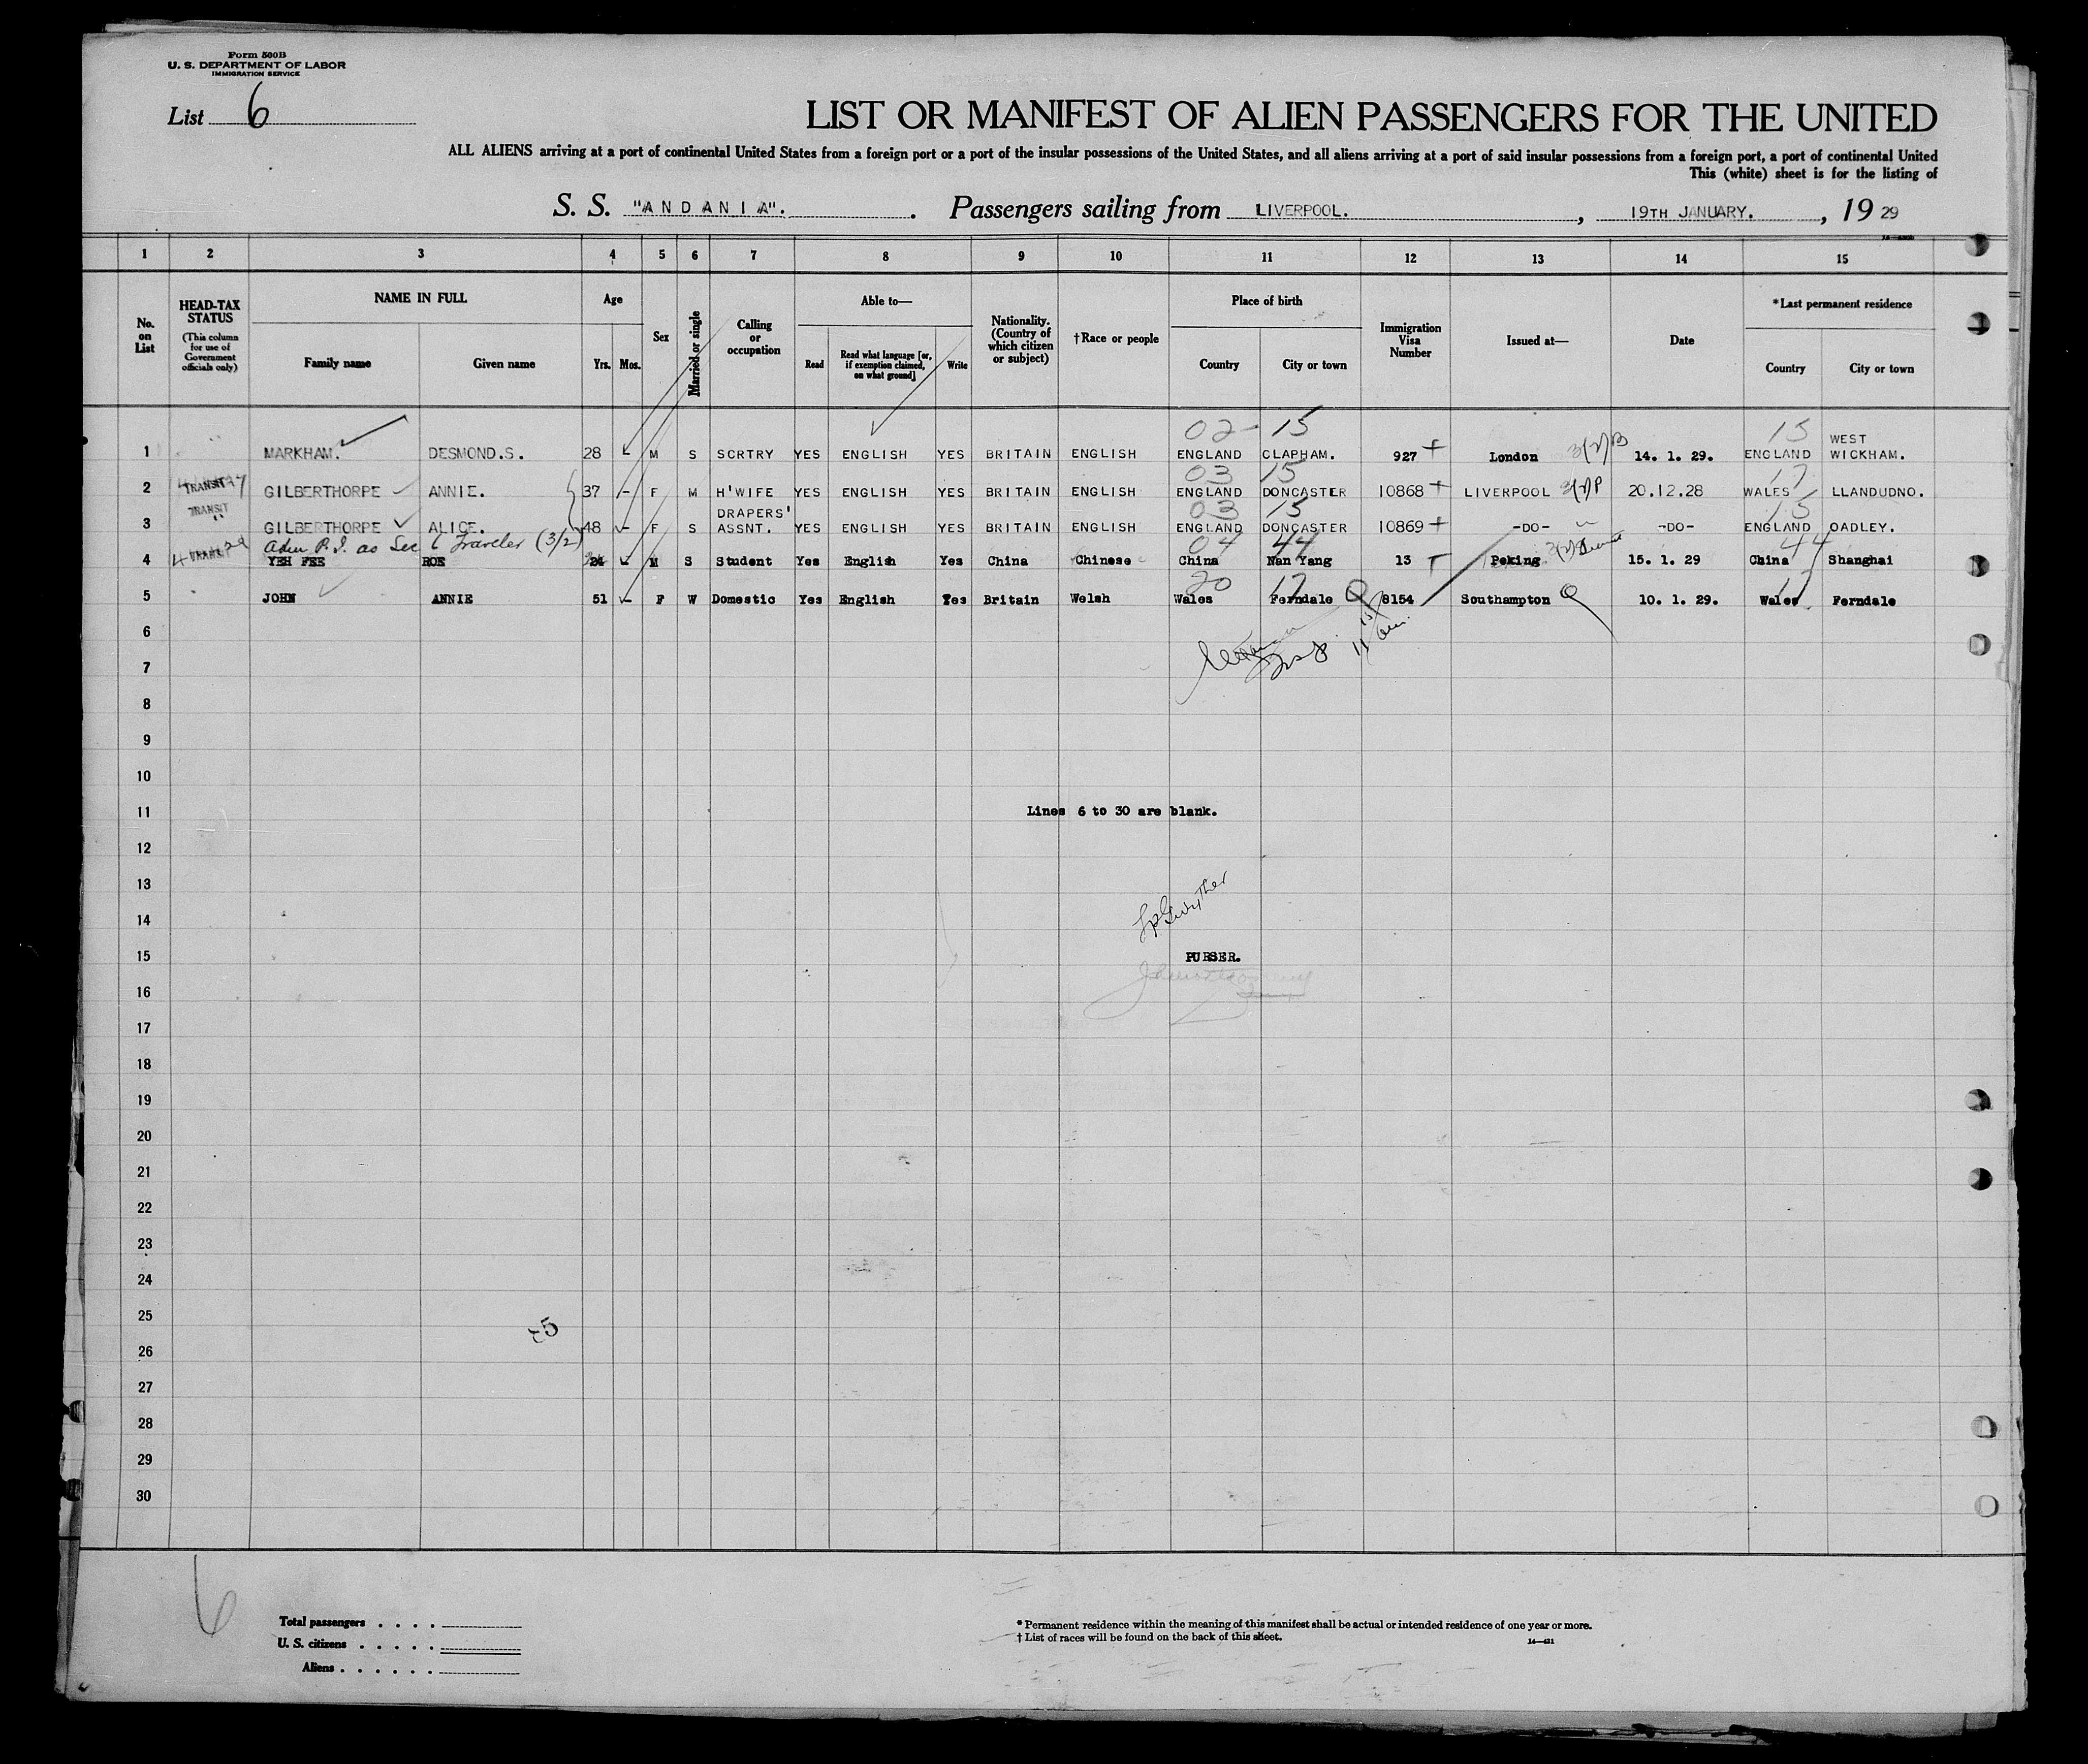 Form 500B
U. S. DEPARTMENT OF LABOR
IMMIGRATION SERVICE
List 6
LIST OR MANIFEST OF ALIEN PASSENGERS FOR THE UNITED
ALL ALIENS arriving at a port of continental United States from a foreign port or a port of the insular possessions of the United States, and all aliens arriving at a port of said insular possessions from a foreign port, a port of continental United
This (white) sheet is for the listing of
S. S. "ANDANIA". Passengers sailing from LIVERPOOL. , 19TH JANUARY. , 19 29
1 2 3 4 5 6 7 8 9 10 11 12 13 14 15
No. on List
HEAD-TAX STATUS (This column for use of Government officials only)
NAME IN FULL
Family name Given name
Age
Yrs. Mos.
Sex
Married or single
Calling or occupation
Able to—
Read Read what language [or, if exemption claimed, on what ground] Write
Nationality. (Country of which citizen or subject)
†Race or people
Place of birth
Country City or town
Immigration Visa Number
Issued at—
Date
*Last permanent residence
Country City or town
02 - 15 15
1 MARKHAM. DESMOND.S. 28 M S SCRTRY YES ENGLISH YES BRITAIN ENGLISH ENGLAND CLAPHAM. 927 London 14. 1. 29. ENGLAND WEST WICKHAM.
03 15 17
2 TRANSIT GILBERTHORPE ANNIE. 37 F M H'WIFE YES ENGLISH YES BRITAIN ENGLISH ENGLAND DONCASTER 10868 LIVERPOOL 20.12.28 WALES LLANDUDNO.
03 15 15
3 TRANSIT GILBERTHORPE ALICE. 48 F S DRAPERS' ASSNT. YES ENGLISH YES BRITAIN ENGLISH ENGLAND DONCASTER 10869 -DO- -DO- ENGLAND OADLEY.
Adm P.I. as Sec 6 Traveler (3/2)
04 44 44
4 TRANSIT YEH FEE ROE 24 M S Student Yes English Yes China Chinese China Nan Yang 13 Peking 15. 1. 29 China Shanghai
20 17 17
5 JOHN ANNIE 51 F W Domestic Yes English Yes Britain Welsh Wales Ferndale 8154 Southampton 10. 1. 29. Wales Ferndale
6
7
8
9
10
11 Lines 6 to 30 are blank.
12
13
14
15 PURSER.
16
17
18
19
20
21
22
23
24
25
26
27
28
29
30
6
Total passengers
U. S. citizens
Aliens
*Permanent residence within the meaning of this manifest shall be actual or intended residence of one year or more.
†List of races will be found on the back of this sheet.